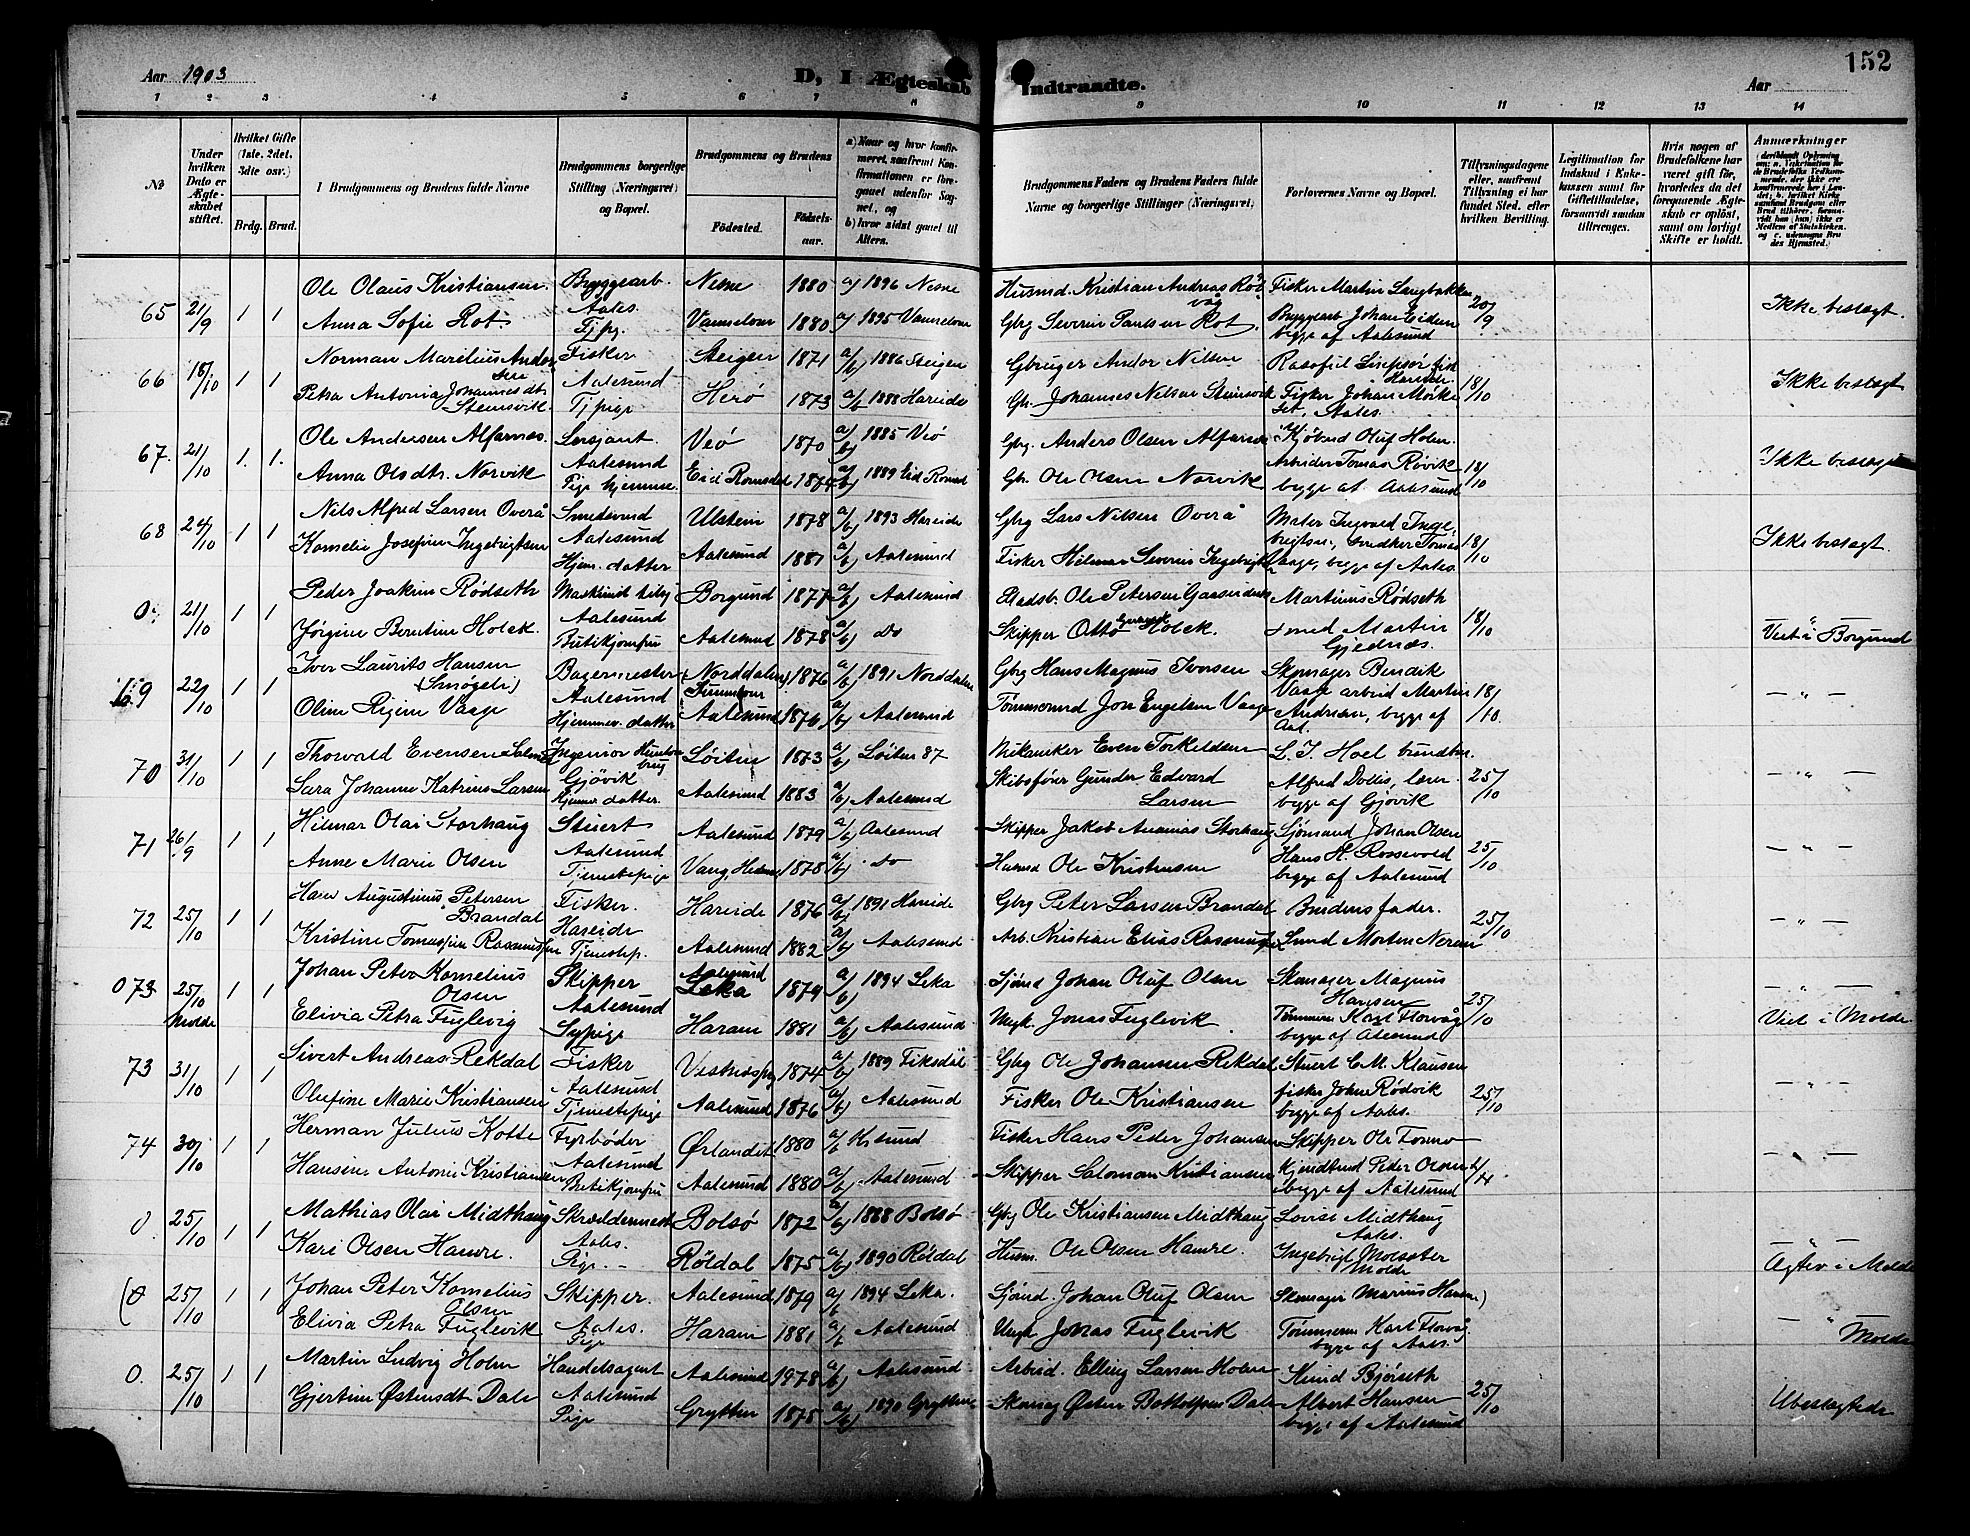 152
Aar 1903
D, I Ægteskab Indtraadte.
Aar
1 2 3 4 5 6 7 8 9 10 11 12 13 14
No
Under hvilken Dato er Ægteskabet stiftet.
Hvilket Gifte (1ste, 2det, 3die osv.)
Brdg. Brud.
Brudgommens og Brudens fulde Navne
Brudgommens borgerlige Stilling (Næringsvei) og Bopæl.
Brudgommens og Brudens
Fødested.
Fødselsaar.
a) Naar og hvor konfirmeret, saafremt Konfirmationen er foregaaet udenfor Sognet, og
b) hvor sidst gaaet til Alters.
Brudgommens Faders og Brudens Faders fulde Navne og borgerlige Stillinger (Næringsvei)
Forlovernes Navne og Bopæl.
Tillysningsdagene eller, saafremt Tillysning ei har fundet Sted, efter hvilken Bevilling.
Legitimation for Indskud i Enkekassen samt for Giftetilladelse, forsaavidt saadan tiltrænges.
Hvis nogen af Brudefolkene har været gift før, hvorledes da det foregaaende Ægteskab er opløst, samt om lovligt Skifte er holdt.
Anmærkninger
65 21/9 1 1 Ole Olaus Kristiansen Bryggearb. Nesne 1880 a) 1896 Nesne Husmd. Kristian Andreas Røvåg Fisker Martin Langbakken 20/9 Ikke beslægt.
Aales.
Anna Sofie Rot Tjpg. Vanselven 1880 a) 1895 Vanselven Gbrg Severin Paulsen Rot. Bryggearb Johan Eiden
begge af Aalesund
66 18/10 1 1 Norman Marelius Andersen Fisker Steigen 1871 a/b) 1886 Steigen Gbruger Andor Nilsen 18/10 Ikke beslægt
Aalesund
Petra Antonia Johannesdt. Stensvik Tjpige Herø 1873 a/b 1888 Hareide Gbr. Johannes Nilsen Stensvik Fisker Johan Mørkeset, Aales.
67. 21/10 1. 1. Ole Andersen Alfarnes. Sersjant. Veø 1870 a/b) 1885 Veø Gbrg. Anders Olsen Alfarnes Kjøbmd Oluf Holm. 18/10 Ikke beslægt
Aalesund
Anna Olsdtr. Norvik Pige hjemme. Eid Romsdal 1874 a/b) 1889 Eid Romsd Gbr. Ole Olsen Norvik Arbeider Tomas Røvik
begge af Aalesund
68 24/10 1 1 Nils Alfred Larsen Overå Smedsvend Ulstein 1878 a/b) 1893 Hareide Gbrg Lars Nilsen Overå Maler Ingvald Ingebrigtsen, Snedker Tomas 18/10 Ikke beslægt.
Aalesund
Kornelie Josefine Ingebrigtsen Hjem. datter Aalesund 1881 a/b) Aalesund Fisker Hilmar Severin Ingebrigts Vaage, begge af Aales.
0. 21/10 1 1 Peder Joakim Rødseth Borgund 1877 a/b) Aalesund Ole Petersen Martinus Rødseth 18/10 Viet i Borgund
Aalesund
Jørgine Berntine Holck. Butikjomfru Aalesund 1878 a/b) Do Skipper Otto Holck. Smed Martin Gjednæs.
69 22/10 1 1 Iver Laurits Hansen (Smøgeli) Bagermester (Norddalen) 1876 a/b) 1891 Norddalen Gbrg Hans Magnus Iversen Skomager Bendik 18/10 — " —
Aalesund
Oline Regine Vaage Hjemmev. datter Aalesund 1876 a/b) Aalesund Tømmermd Jon Engelsen Vaage Vaage arbeid Martin Andersen, begge af Aal.
70 31/10 1 1 Thorvald Evensen Ingeniør Løiten 1873 a/b) Løiten 87 Mekaniker Even Torkeldsen L. J. Hoel 25/10 — " —
Gjøvik
Sara Johanne Katrine Larsen Hjemme datter. Aalesund 1883 a/b) Aalesund Skibsfører Gunder Edvard Larsen Alfred Dollis, lærer.
begge af Gjøvik
71 26/9 1 1 Hilmar Olai Storhaug Stuert Aalesund 1879 a/b) Aalesund Skipper Jakob Ananias Storhaug Sjømand Johan Olsen 25/10 — " —
Aalesund
Anne Marie Olsen Tjenestepige Vang, Hedm 1878 a/b) Do Husmd Ole Kristensen Hans H. Rossevold
begge af Aalesund
72 25/10 1 1 Hans Augustinus Petersen Brandal Fisker. Hareide 1876 a/b) 1891 Hareide Gbrg Peter Larsen Brandal Brudens fader. 25/10 — " —
Hareide
Kristine Tomasine Rasmussen Tjenestep. Aalesund 1882 a/b) Aalesund Arb. Kristian Elias Rasmussen Morten Neren
073 25/10 Molde 1 1 Johan Peter Kornelius Olsen Skipper Aalesund Leka 1879 a/b) 1894 Leka Sjømd Johan Oluf Olsen Skomager Magnus Hansen 25/10 — " —
Aalesund
Elivia Petra Fuglevig Sypige Haram 1881 a/b) Aalesund Ungk. Jonas Fuglevik. Tømmerm Karl Florvåg Viet i Molde
begge af Alesund
73 31/10 1 1 Sivert Andreas Rekdal Fisker Vestnes 1874 a/b) 1889 Fiksdal Gbrg Ole Johansen Rekdal Stuert C. M. Klausen 25/10 — " —
Aalesund
Olufine Marie Kristiansen Tjenestepige Aalesund 1876 a/b) Aalesund Fisker Ole Kristiansen fisker Johan Rødvik
begge af Aales.
74 30/10 1 1 Herman Julius Kotte Fyrbøder Ørlandet 1880 a/b Krsund Fisker Hans Peder Johansen Skipper Ole Tomo — " —
Aalesund
Hansine Antonie Kristiansen Butikjomfru Aalesund 1880 a/b) Aalesund Skipper Salomon Kristiansen Peder Olsen
begge af Aalesund
0. 25/10 1 1 Mathias Olai Midthaug Skræddermest Bolsø 1872 a/b) 1888 Bolsø Gbrg Ole Kristiansen Midthaug Lovise Midthaug Aales. — " —
Aales.
Kari Olsen Hamre. Pige Røldal 1875 a/b) 1890 Røldal Husm. Ole Olsen Hamre. Ingebrigt Molsæter Molde Ægtev. i Molde
(0 25/10 1 1 Johan Peter Kornelius Olsen Skipper. Aalesund 1879 a/b 1894 Leka. Sjømd. Johan Oluf Olsen Skomager Marius Hansen)
Aales.
Elivia Petra Fuglevik Pige Haram 1881 a/b Aalesund Ungk Jonas Fuglevik Tømmerm Karl Florvåg — " Molde
begge af Aales.
0. 25/10 1 1 Martin Ludvig Holm Handelsagent Aalesund 1978 a/b) Aalesund Arbeid. Elling Larsen Holm Bjørseth 25/10
Aalesund
Gjertine Østensdt Dale Pige Grytten 1875 a/b) 1890 Grytten Skomag Østen Bottolfsen Dale Albert Hansen Ubeslægtede
begge af Aalesund